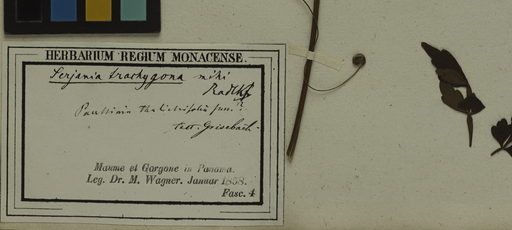 HERBARIUM REGIUM MONACENSE.
Serjania trachygona mihi
Radlkf.
Paullinia thalictrifolia Juss.?
test. Grisebach.
Mamme et Gorgone in Panama.
Leg. Dr. M. Wagner. Januar 1858.
Fasc. 4